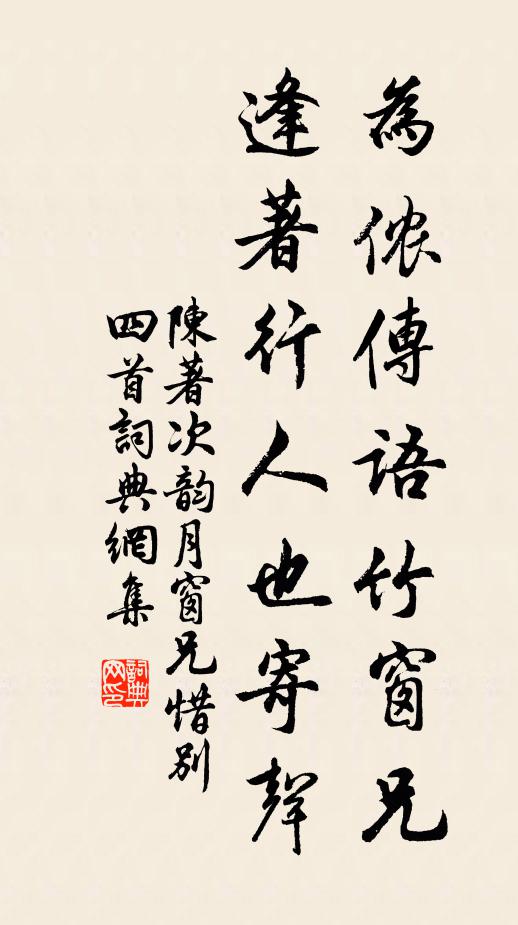 為儂傳語竹窗兄
逢著行人也寄聲
陳著次韵月窗兄惜別
四首詞典網集
詞典网印